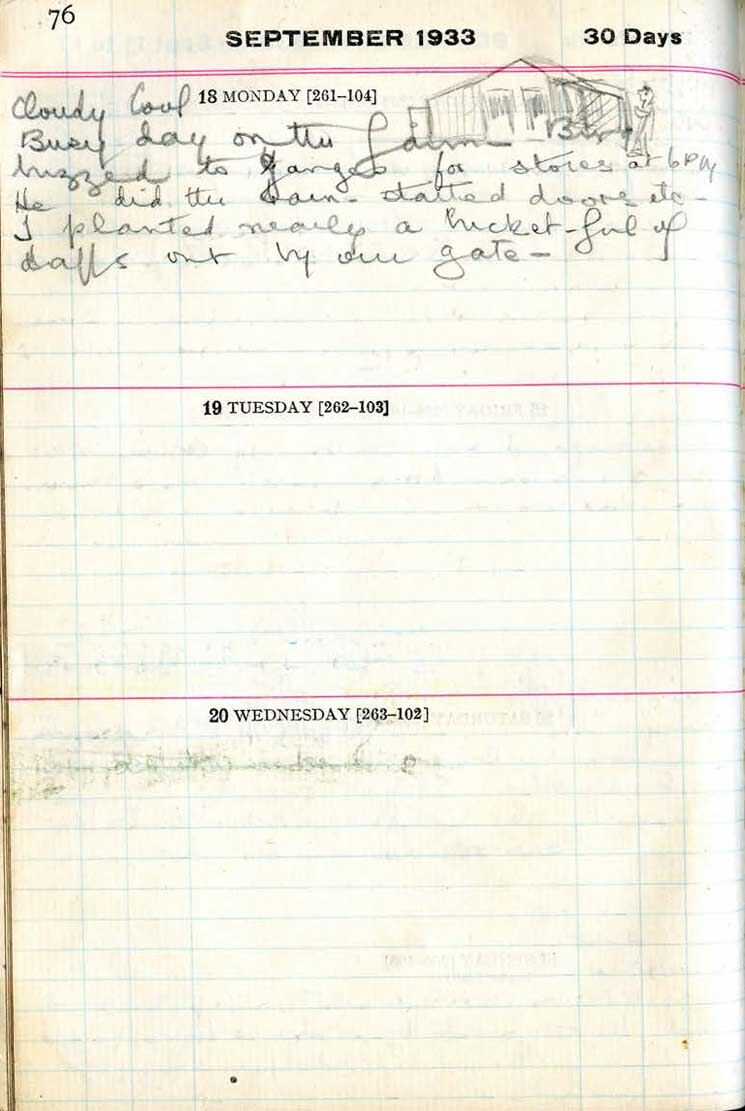 76
SEPTEMBER 1933 30 Days
Cloudy Cool 18 MONDAY [261–104]
Busy day on the farm -
buzzed to Ganges for stores at 6 PM
He did the barn - started doors etc -
I planted nearly a bucket-ful of
daffs out by our gate -
19 TUESDAY [262–103]
20 WEDNESDAY [263–102]